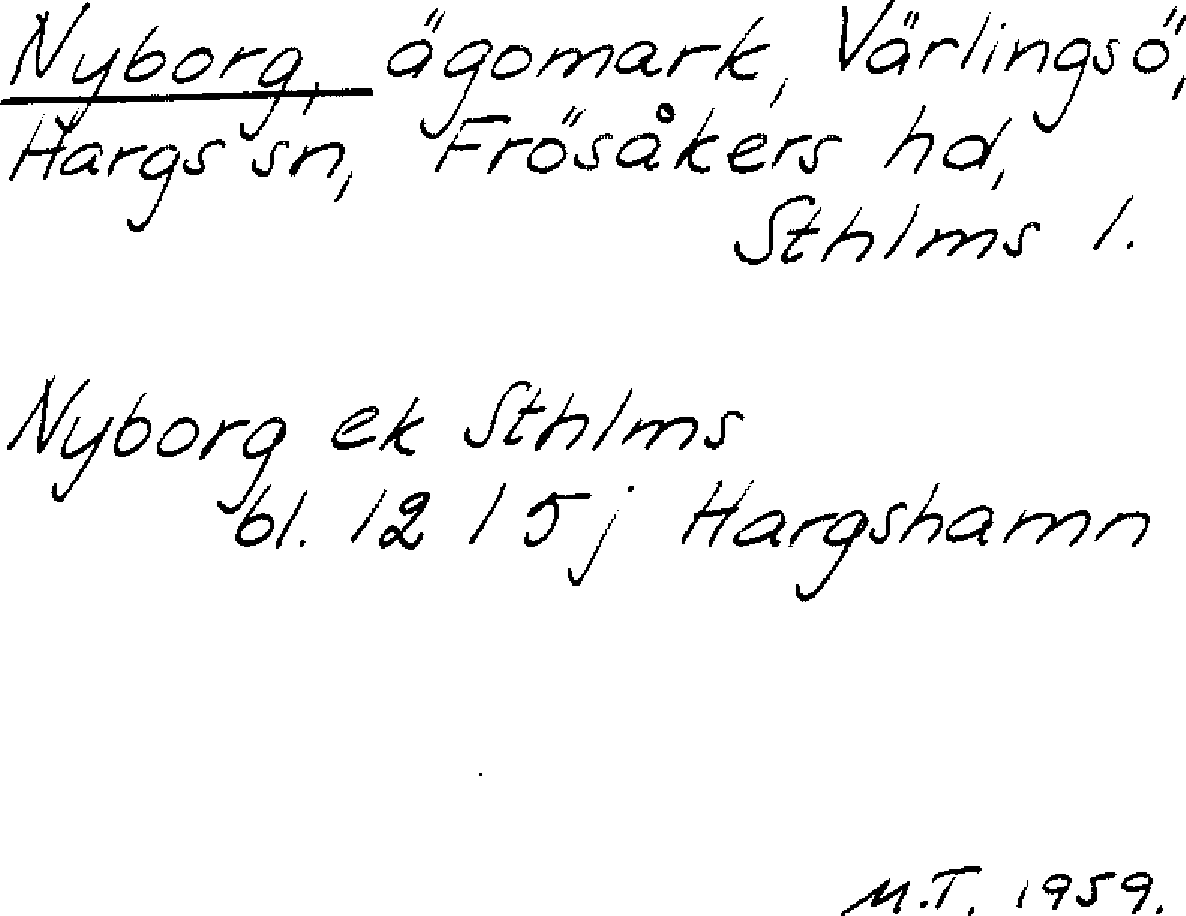 Nyborg, ägomark, Värlingsö,
Hargs sn, Frösåkers hd,
Sthlms l.
Nyborg ek Sthlms
bl. 12 I 5j Hargshamn
M.T. 1959.